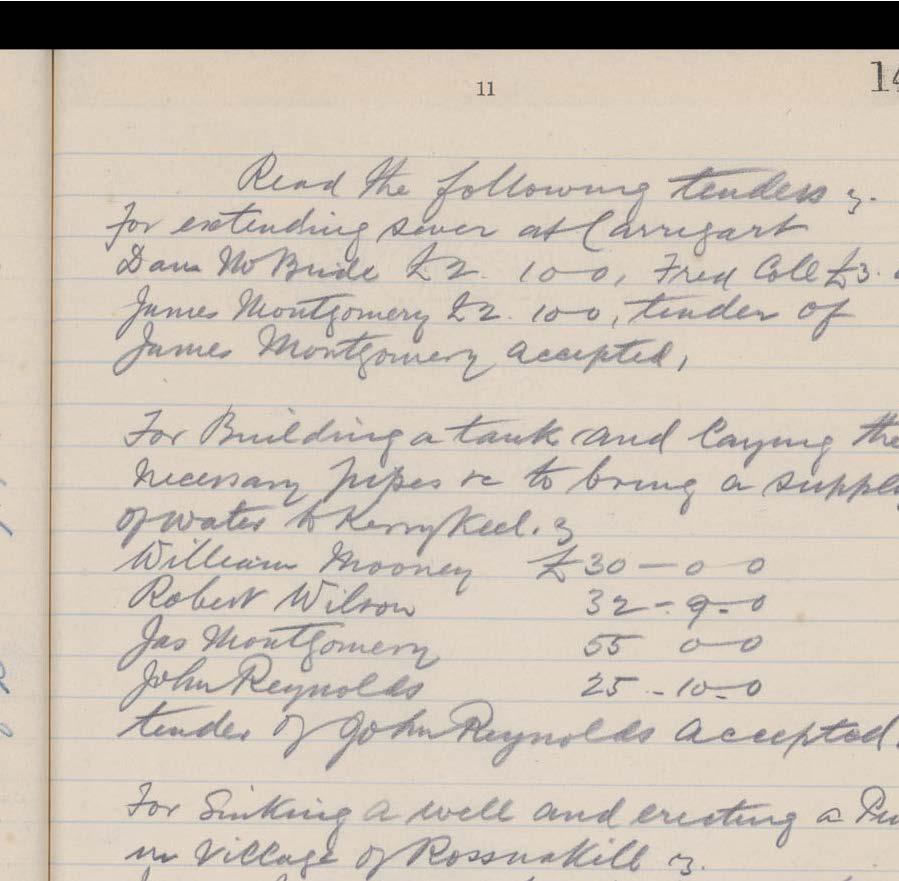 11
14
Read the following tenders :-
For extending sewer at Carrigart
Danl McBride £2. 10-0, Fred Coll £3.
James Montgomery £2. 10-0, tender of
James Montgomery accepted,
For Building a tank and laying the
necessary pipes &c to bring a supply
of water to Kerrykeel. :-
William Mooney £30-0 0
Robert Wilson 32-9-0
Jas Montgomery 55 0-0
John Reynolds 25-10-0
tender of John Reynolds accepted.
For Sinking a well and erecting a Pu
in Village of Rossnakill :-